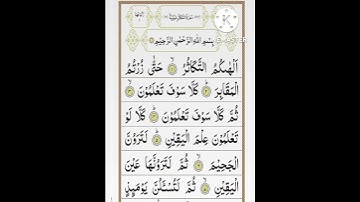 سُورَةُ التَّكَاثُرِ مَكِّيَّةٌ
بِسْمِ اللّٰهِ الرَّحْمٰنِ الرَّحِيْمِ
اَلْهٰىكُمُ التَّكَاثُرُ ۝۱ حَتّٰى زُرْتُمُ
الْمَقَابِرَ ۝۲ كَلَّا سَوْفَ تَعْلَمُوْنَ ۝۳
ثُمَّ كَلَّا سَوْفَ تَعْلَمُوْنَ ۝۴ كَلَّا لَوْ
تَعْلَمُوْنَ عِلْمَ الْيَقِيْنِ ۝۵ لَتَرَوُنَّ
الْجَحِيْمَ ۝۶ ثُمَّ لَتَرَوُنَّهَا عَيْنَ
الْيَقِيْنِ ۝۷ ثُمَّ لَتُسْـَٔلُنَّ يَوْمَىِٕذٍ